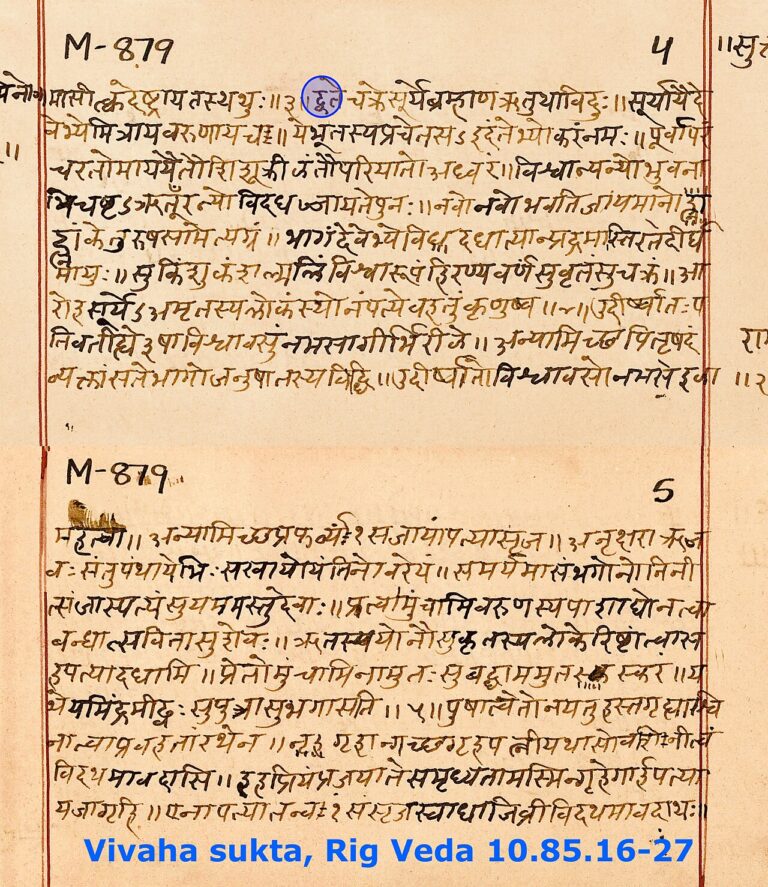 M-879 4
मासीत्क्वदेष्ट्रायतस्थथुः॥३॥द्वेतेचक्रेसूर्येब्रम्हाणऋतुथाविदुः॥सूर्यायैदे
वेभ्योमित्रायवरुणायच॥येभूतस्यप्रचेतसऽइदंतेभ्योकरंनमः॥पूर्वापरं
चरतोमाययैतौशिशूक्रीळंतौपरियातोअध्वरं॥विश्वान्यन्योभुवना
भिचष्टऽऋतूँरन्योविदधज्जायतेपुनः॥नवोनवोभवतिजायमानो
ह्नांकेतुरुषसामेत्यग्रं॥भागंदेवेभ्योविदधात्यान्प्रचंद्रमास्तिरतेदीर्घ
मायुः॥सुकिंशुकंशल्मलिंविश्वरूपंहिरण्यवर्णंसुवृतंसुचक्रं॥आ
रोहसूर्येऽअमृतस्यलोकंस्योनंपत्येवहतुंकृणुष्व॥४॥उदीर्ष्वातःप
तिवतीह्ये३षाविश्वावसुंनमसागीर्भिरीळे॥अन्यामिच्छपितृषदं
व्यक्तांसतेभागोजनुषातस्यविद्धि॥उदीर्ष्वातोविश्वावसोनमसेळा
M-879 5
महेत्वा॥अन्यामिच्छप्रफर्व्यं१संजायांपत्यासृज॥अनृक्षराऋज
वःसंतुपंथायेभिःसखायोयंतिनोवरेयं॥समर्यमासंभगोनोनिनी
त्संजास्पत्यंसुयममस्तुदेवाः॥प्रत्वामुंचामिवरुणस्यपाशाद्येनत्वा
बध्नात्सवितासुशेवः॥ऋतस्ययोनौसुकृतस्यलोकेरिष्टांत्वास
हपत्यादधामि॥प्रेतोमुंचामिनामुतःसुबद्धाममुतस्करं॥य
थेयमिंद्रमीढ्वःसुपुत्रासुभगासति॥५॥पूषात्वेतोनयतुहस्तगृह्याश्वि
नात्वाप्रवहतांरथेन॥गृहान्गच्छगृहपत्नीयथासोवशिनीत्वं
विदथमावदासि॥इहप्रियंप्रजयातेसमृध्यतामस्मिन्गृहेगार्हपत्या
यजागृहि॥एनापत्यातन्वं१संसृजस्वाधाजिव्रीविदथमावदाथः॥
Vivaha sukta, Rig Veda 10.85.16-27